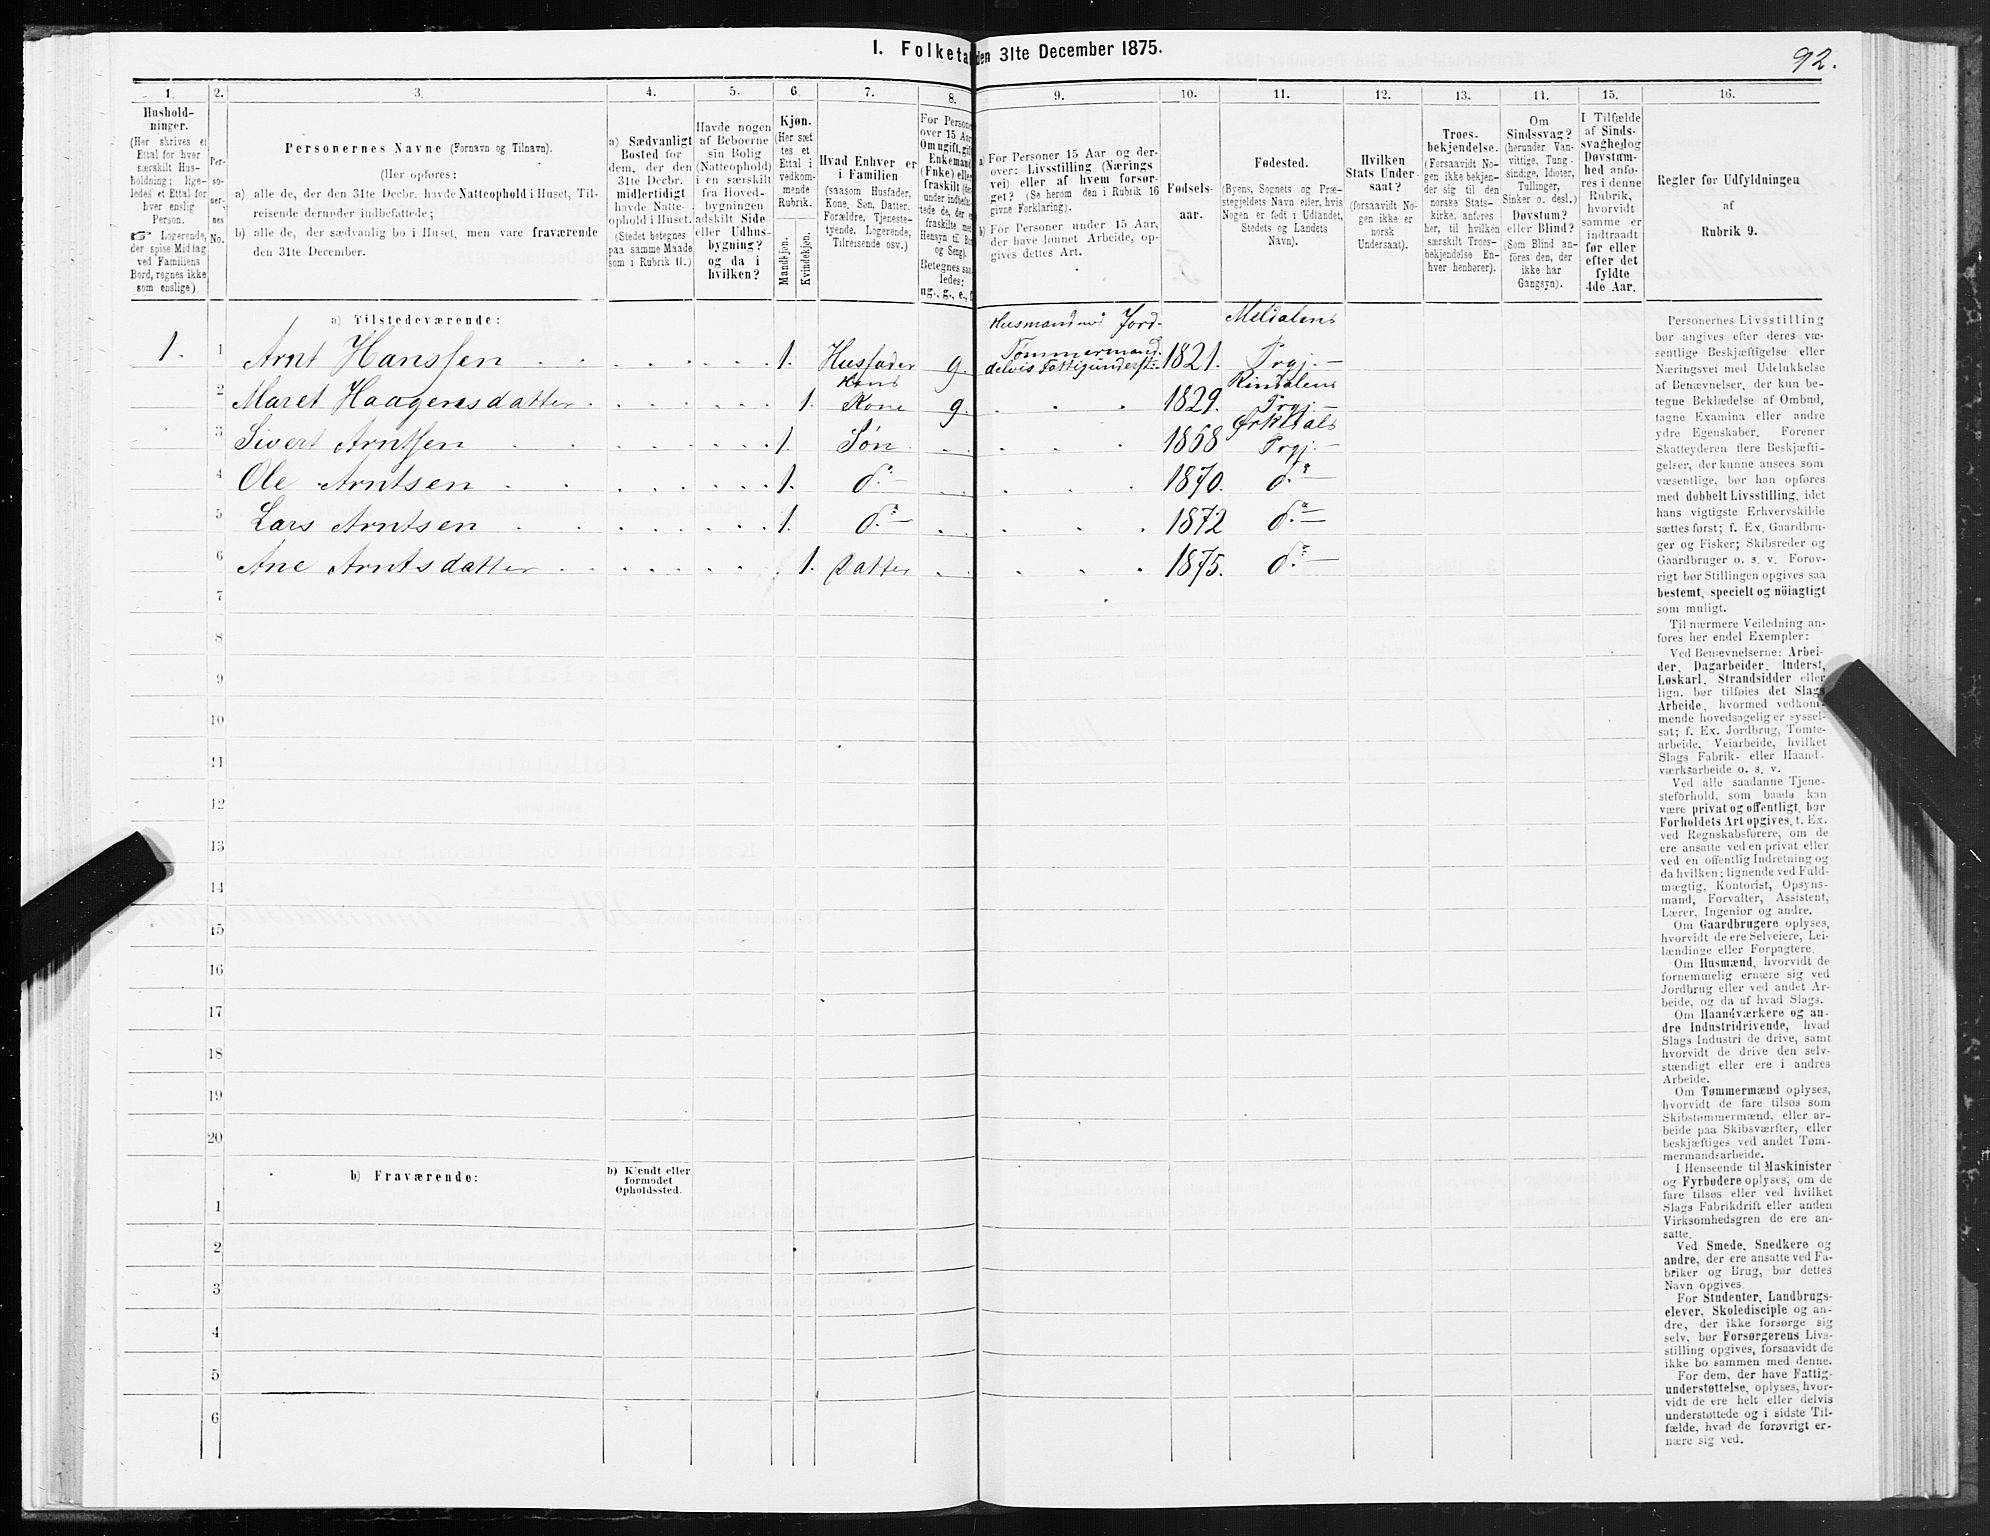 92.
I. Folketal den 31te December 1875.
1. 2. 3. 4. 5. 6. 7. 8. 9. 10. 11. 12. 13. 14. 15. 16.
Hushold-
ninger.
(Her skrives et
Ettal for hver
særskilt Hus-
holdning; lige-
ledes et Ettal for
hver enslig
Person.
☞ Logerende,
der spise Middag
ved Familiens
Bord, regnes ikke
som enslige).
Per-
so-
ner-
nes
No.
Personernes Navne (Fornavn og Tilnavn).
(Her opføres:
a) alle de, der den 31te Decbr. havde Natteophold i Huset, Til-
reisende derunder indbefattede;
b) alle de, der sædvanlig bo i Huset, men vare fraværende
den 31te December.
a) Sædvanligt
Bosted for
dem, der den
31te Decbr.
midlertidigt
havde Natte-
ophold i Huset.
(Stedet betegnes
paa samme Maade
som i Rubrik 11.)
Havde nogen
af Beboerne
sin Bolig
(Natteophold)
i en særskilt
fra Hoved-
bygningen
adskilt Side
eller Udhus-
bygning?
og da i
hvilken?
Kjøn.
(Her sæt
tes et
Ettal i
vedkom-
mende
Rubrik.
Mandkjøn.
Kvindekjøn.
Hvad Enhver er
i Familien
(saasom Husfader,
Kone, Søn, Datter,
Forældre, Tjeneste-
tyende, Logerende,
Tilreisende osv.)
For Persone
over 15 Aar
Om ugift, gift
Enkemand
(Enke) eller
fraskilt (de
under indbefat-
tede de, der e
fraskilte med
Hensyn til Bo
og Seng).
Betegnes saa
ledes:
ug., g., e., f.
a) For Personer 15 Aar og der-
over: Livsstilling (Nærings
vei) eller af hvem forsør-
get? (Se herom den i Rubrik 16
givne Forklaring).
b) For Personer under 15 Aar,
der have lønnet Arbeide, op-
gives dettes Art.
Fødsels-
aar.
Fødested.
(Byens, Sognets og Præ-
stegjeldets Navn eller, hvis
Nogen er født i Udlandet,
Stedets og Landets
Navn).
Hvilken
Stats Under-
saat?
(forsaavidt No-
gen ikke er
norsk
Undersaat).
Troes-
bekjendelse.
(Forsaavidt No-
gen ikke bekjen-
der sig til den
norske Stats-
kirke, anføres
her, til hvilken
særskilt Troes-
bekjendelse En-
hver henhører).
Om
Sindssvag?
(herunder Van-
vittige, Tung-
sindige, Idioter,
Tullinger,
Sinker o. desl.)
Døvstum?
eller Blind?
(Som Blind an-
føres den, der
ikke har
Gangsyn).
I Tilfælde
af Sinds-
svaghed og
Døvstum-
hed anfø-
res i denne
Rubrik,
hvorvidt
samme er
indtraadt
før eller
efter det
fyldte
4de Aar.
Regler for Udfyldningen
af
Rubrik 9.
a) Tilstedeværende:
Husmand med Jord
Meldalens
1. 1 Arnt Hanssen 1. Husfader g. Tømmermand. delvis Fattigunderst:. 1821. Prgj.
2 Maret Haagensdatter 1. Hans Kone g. 1829. Rindalens Prgj.
3 Sivert Arntsen 1. Søn 1868 Ørkedals Prgj.
4 Ole Arntsen 1. do 1870. do
5 Lars Arntsen 1. do 1872 do
6 Ane Arntsdatter 1. Datter 1875. do
7
8
9
10
11
12
13
14
15
16
17
18
19
20
b) Fraværende:
b) Kjendt eller
formodet
Opholdssted.
1
2
3
4
5
6
Personernes Livsstilling
bør angives efter deres væ-
sentlige Beskjæftigelse eller
Næringsvei med Udelukkelse
af Benævnelser, der kun be-
tegne Beklædelse af Ombud,
tagne Examina eller andre
ydre Egenskaber. Forener
Skatteyderen flere Beskjæfti-
gelser, der kunne ansees som
væsentlige, bør han opføres
med dobbelt Livsstilling, idet
hans vigtigste Erhvervskilde
sættes først; f. Ex. Gaardbru-
ger og Fisker; Skibsreder og
Gaardbruger o. s. v. Forøv-
rigt bør Stillingen opgives saa
bestemt, specielt og nöiagtigt
som muligt.
Til nærmere Veiledning an-
føres her endel Exempler:
Ved Benævnelserne: Arbei-
der, Dagarbeider, Inderst,
Løskarl, Strandsidder eller
lign. bør tilføies det Slags
Arbeide, hvormed vedkom-
mende hovedsagelig er syssel-
sat; f. Ex. Jordbrug, Tomte-
arbeide, Veiarbeide, hvilket
Slags Fabrik- eller Haand-
værksarbeide o. s. v.
Ved alle saadanne Tjene-
steforhold, som baade kan
være privat og offentligt, bør
Forholdets Art opgives, t. Ex.
ved Regnskabsførere, om de
ere ansatte ved en privat eller
ved en offentlig Indretning og
da hvilken; lignende ved Fuld-
mægtig, Kontorist, Opsyns-
mand, Forvalter, Assistent,
Lærer, Ingeniør og andre.
Om Gaardbrugere oplyses,
hvorvidt de ere Selveiere, Lei-
lændinge eller Forpagtere.
Om Husmænd, hvorvidt de
fornemmelig ernære sig ved
Jordbrug eller ved andet Ar-
beide, og da af hvad Slags.
Om Haandværkere og an-
dre Industridrivende, hvad
Slags Industri de drive, samt
hvorvidt de drive den selv-
stændigt eller ere i andres
Arbeide.
Om Tømmermænd oplyses,
hvorvidt de fare tilsøs som
Skibstømmermænd, eller ar-
beide paa Skibsværfter, eller
beskjæftiges ved andet Tøm-
mermandsarbeide.
I Henseende til Maskinister
og Fyrbødere oplyses, om de
fare tilsøs eller ved hvilket
Slags Fabrikdrift eller anden
Virksomhedsgren de ere an-
satte.
Ved Smede, Snedkere og
andre, der ere ansatte ved Fa-
briker og Brug, bør dettes
Navn opgives.
For Studenter, Landbrugs-
elever, Skoledisciple og an-
dre, der ikke forsørge sig
selv, bør Forsørgerens Livs-
stilling opgives, forsaavidt de
ikke bo sammen med denne.
For dem, der have Fattig-
understøttelse, oplyses, hvor-
vidt de ere helt eller delvis
understøttede og i sidste Til-
fælde, hvad de forøvrigt er-
nære sig ved.